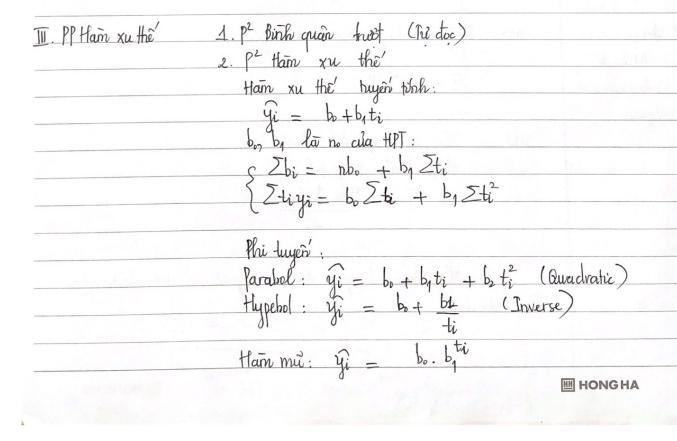 III. PP Hàm xu thế
1. P² Bình quân trượt (Tự đọc)
2. P² Hàm xu thế
Hàm xu thế tuyến tính:
ŷi = b₀ + b₁ti
b₀, b₁ là no của HPT:
Σbi = nb₀ + b₁ Σti
Σtiyi = b₀ Σti + b₁ Σti²
Phi tuyến:
Parabol: ŷi = b₀ + b₁ti + b₂ti² (Quadratic)
Hypebol: ŷi = b₀ + b1/ti (Inverse)
Hàm mũ: ŷi = b₀.b₁^ti
HONG HA